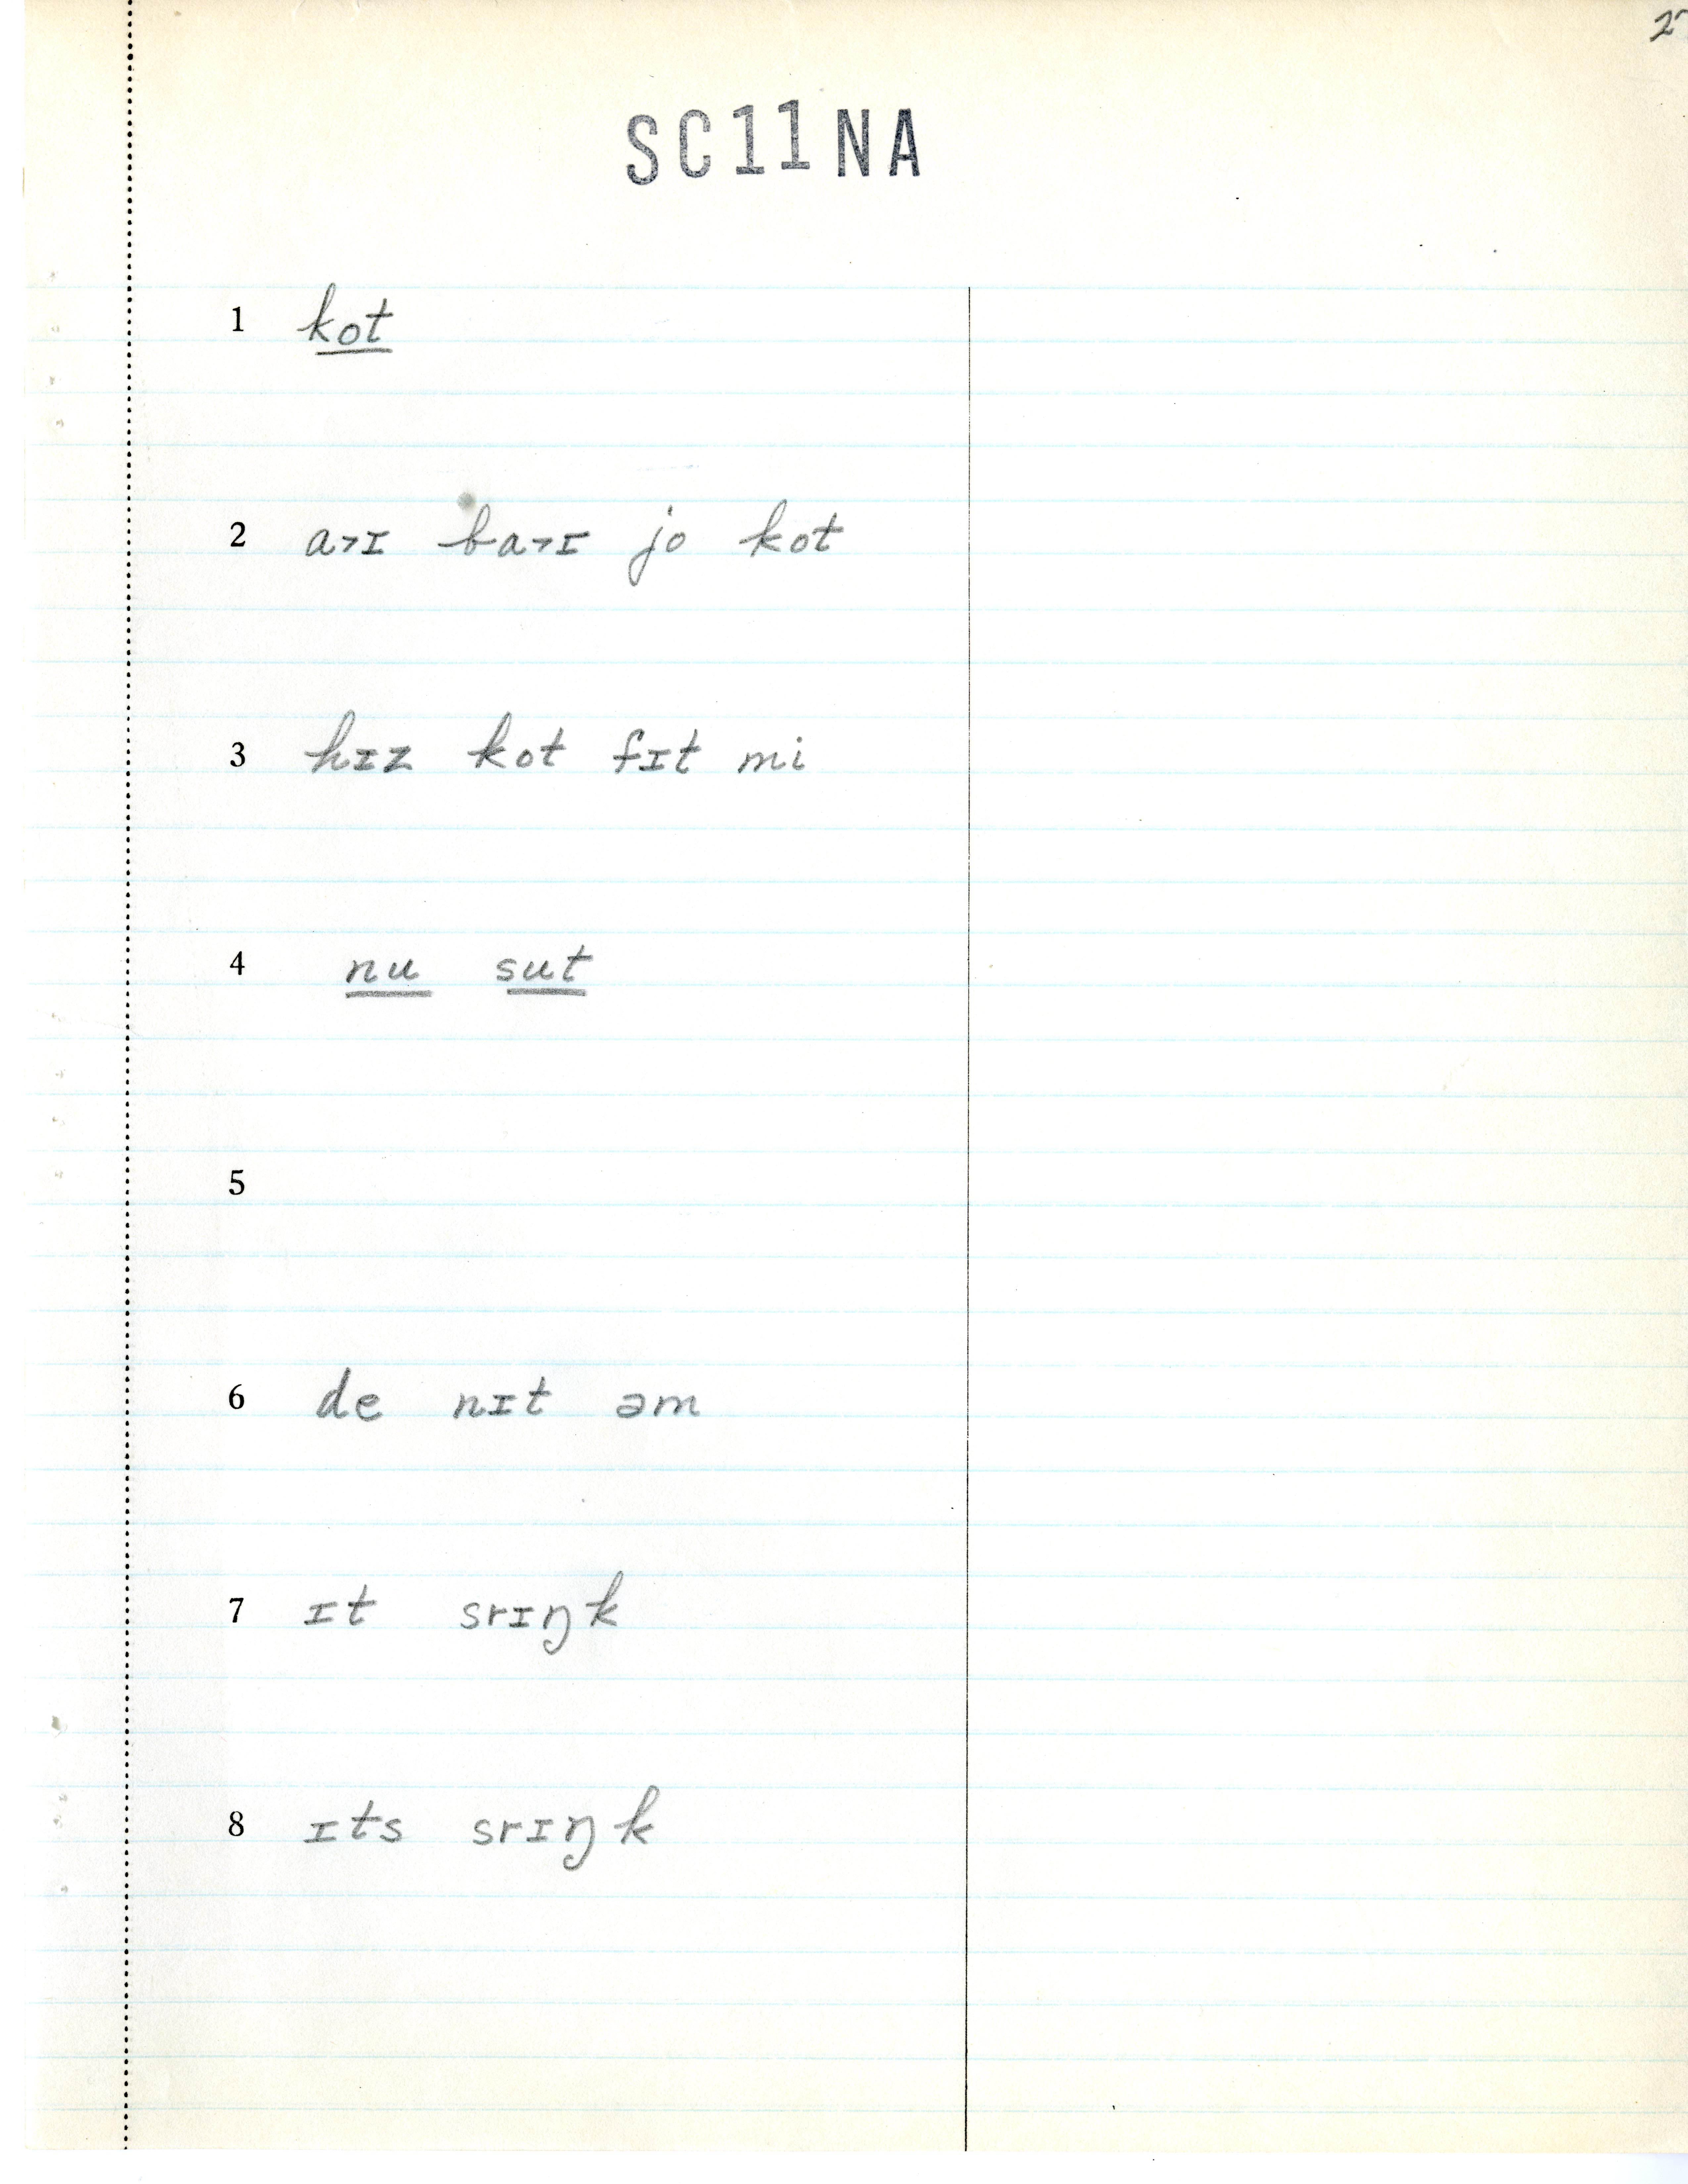 SC11NA
1 kot
2 aɤɪ baɤɪ jo kot
3 hɪz kot fɪt mi
4 nu sut
5
6 de nɪt əm
7 ɪt srɪŋk
8 ɪts srɪŋk